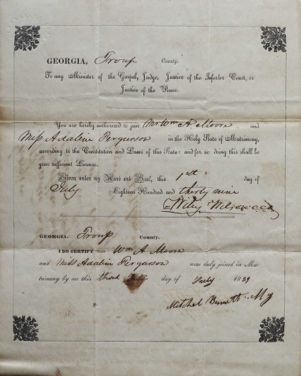 GEORGIA, Troup County.
To any Minister of the Gospel, Judge, Justice of the Inferior Court, or
Justice of the Peace.
You are hereby authorized to join Mr Wm A Moore and
Miss Adaline Ferguson in the Holy State of Matrimony,
according to the Constitution and Laws of this State: and for so doing this shall be
your sufficient License.
Given under my Hand and Seal, this 1st day of
July Eighteen Hundred and thirty nine
GEORGIA, Troup County.
I DO CERTIFY that Wm A. Moore
and Miss Adaline Ferguson were duly joined in Ma-
trimony by me this day of July 1839
Mitchel